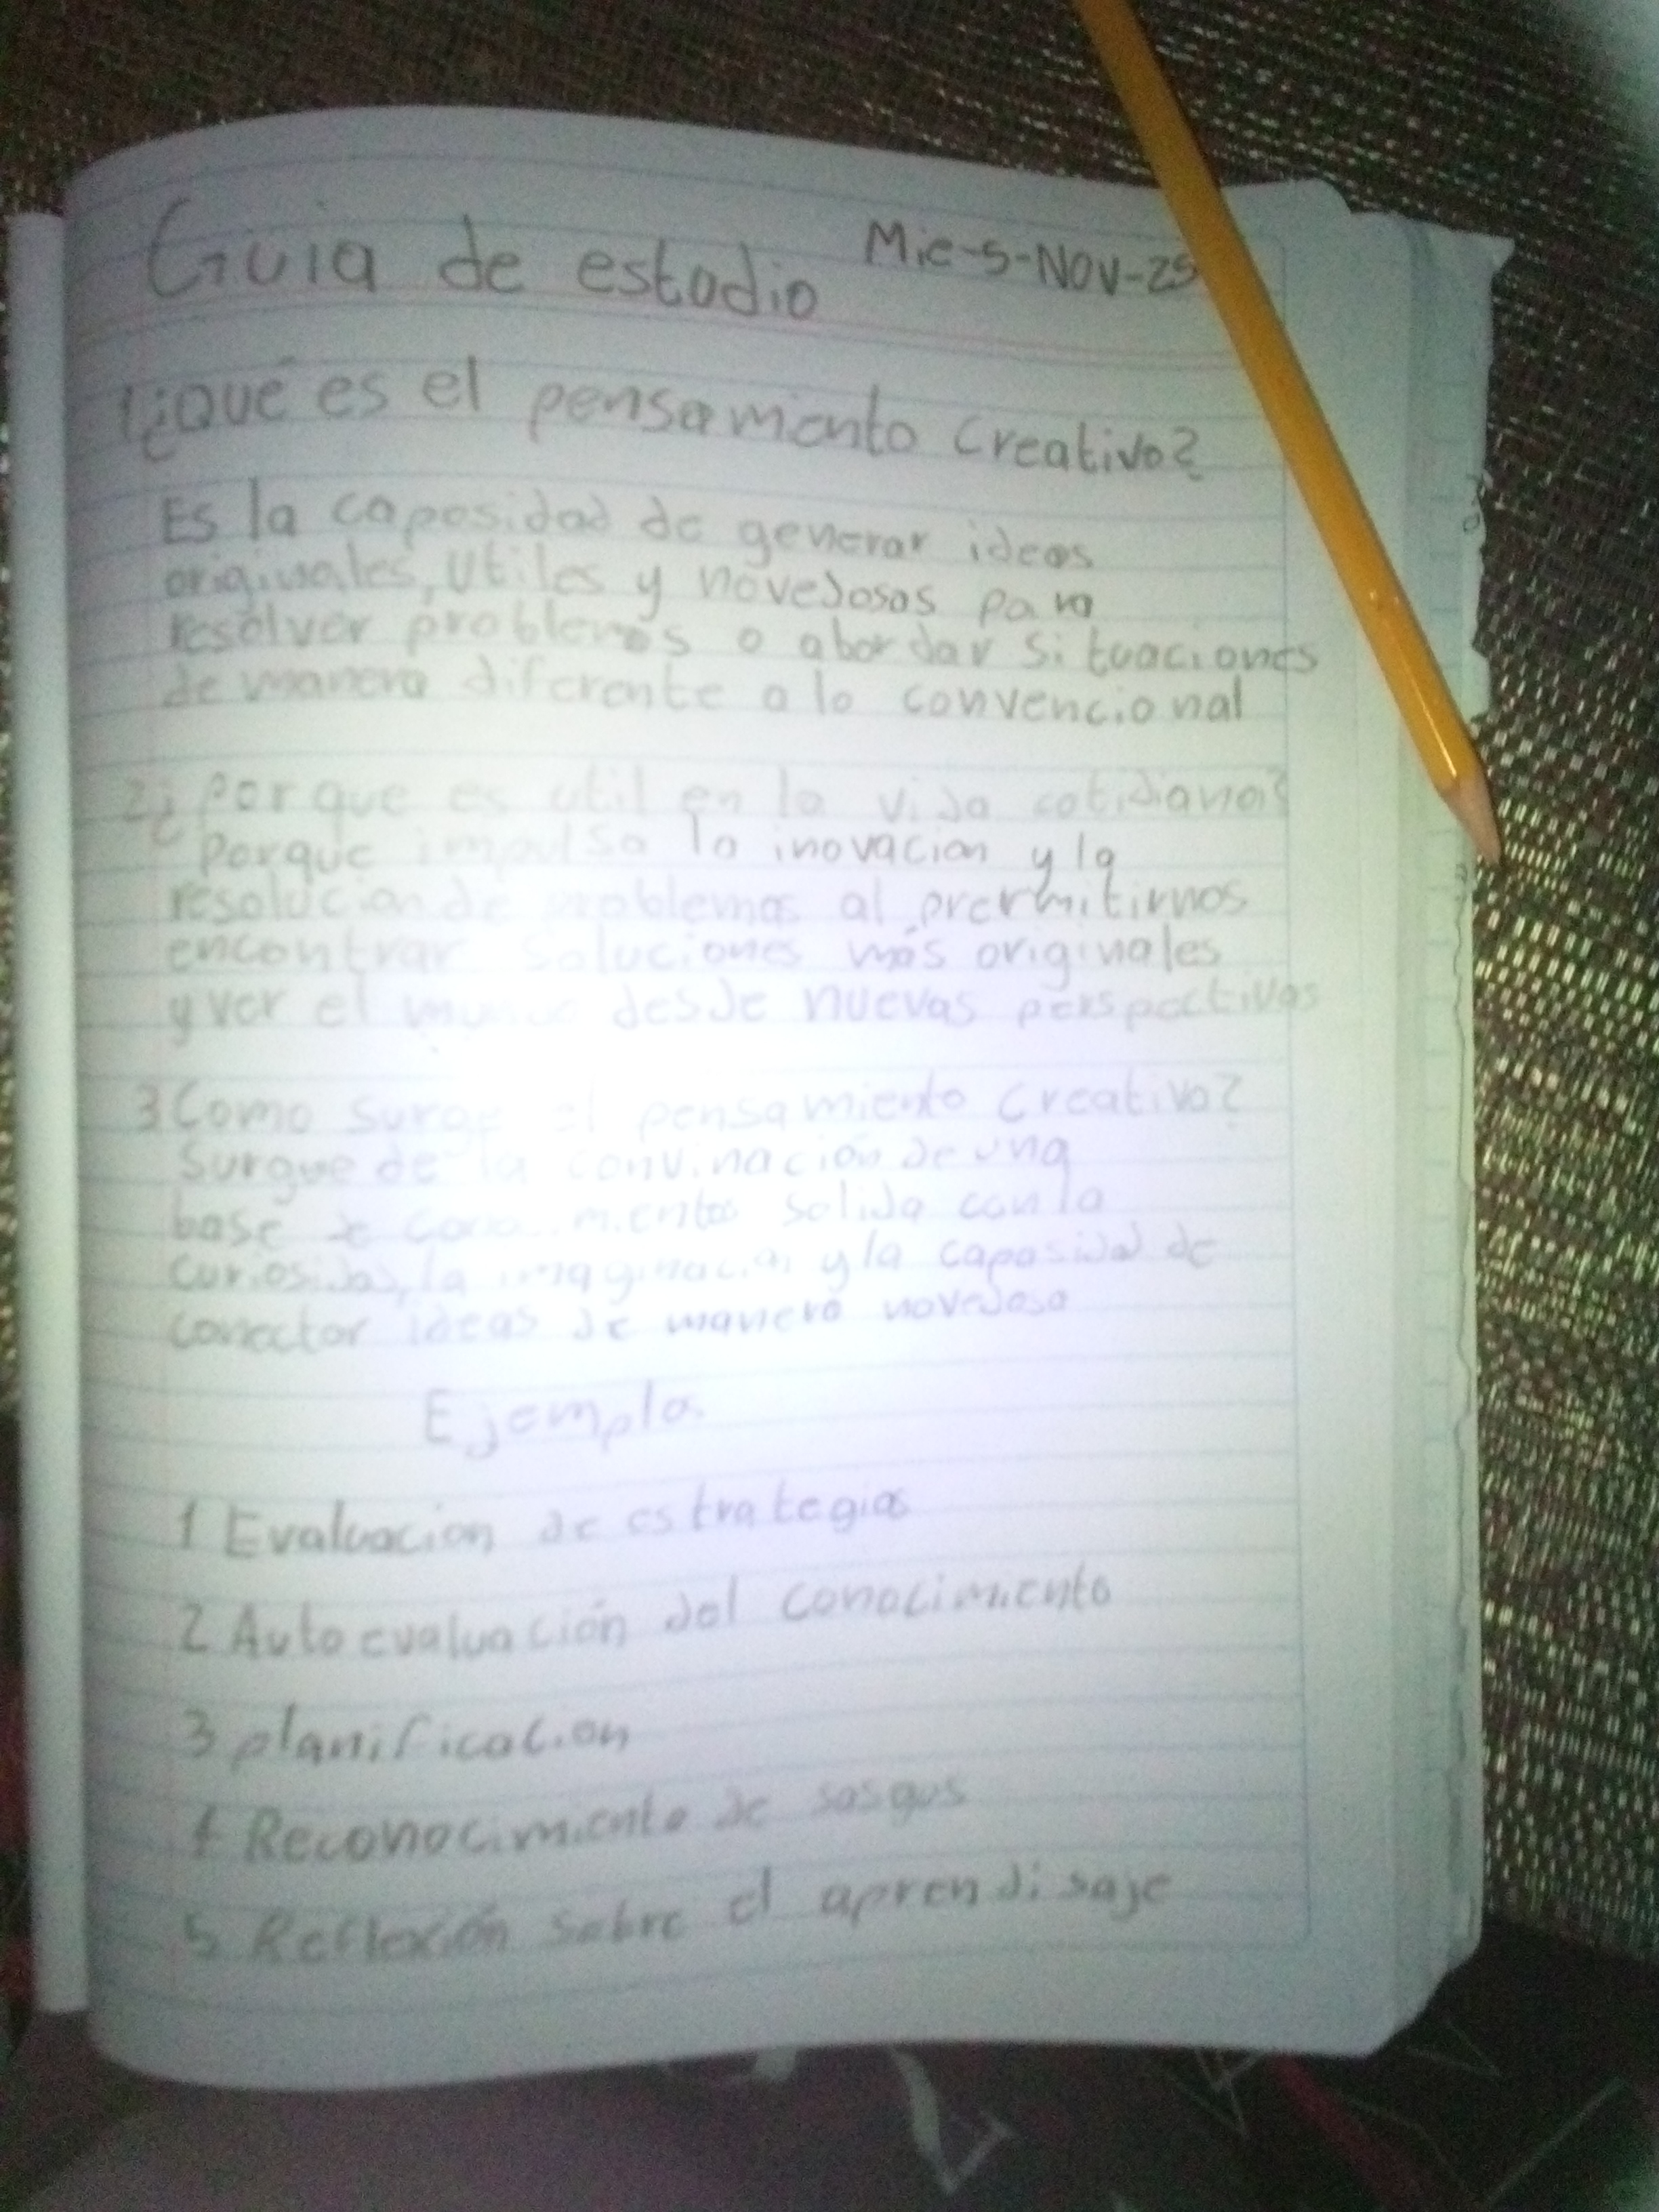 Guia de estudio Mie-5-NOV-25
1¿Qué es el pensamiento Creativo?
Es la capasidad de generar ideas
originales, utiles y novedosas para
resolver problemas o abordar situaciones
de manera diferente a lo convencional
2¿Porque es util en la vida cotidiana?
Porque impulsa la inovacion y la
resolucion de problemas al prermitirnos
encontrar soluciones más originales
y ver el mundo desde nuevas perspectivas
3 Como surge el pensamiento Creativo?
Surgue de la convinación de una
base de conocimientos solida con la
curiosidad, la imaginacion y la capasidad de
conectar ideas de manera novedosa
Ejemplo.
1 Evaluacion de estrategias
2 Autoevaluación del conocimiento
3 planificacion
4 Reconocimiento de sasgos
5 Reflexión sobre el aprendisaje